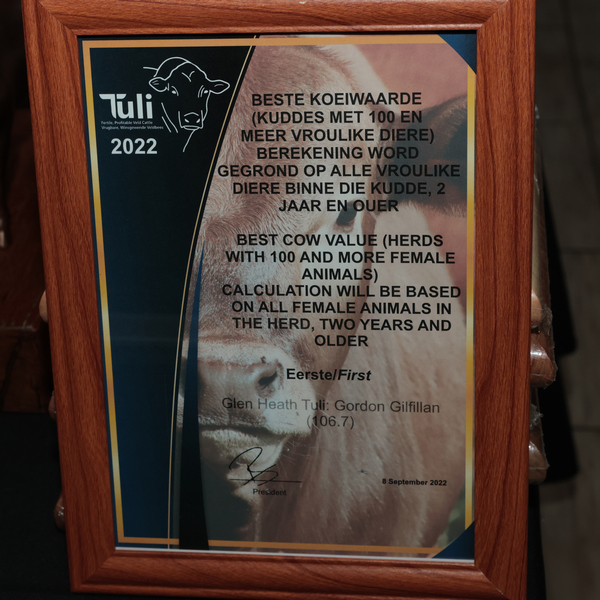 Tuli
Fertile, Profitable Veld Cattle
Vrugbare, Winsgewende Veldbeeste
2022
BESTE KOEIWAARDE
(KUDDES MET 100 EN
MEER VROULIKE DIERE)
BEREKENING WORD
GEGROND OP ALLE VROULIKE
DIERE BINNE DIE KUDDE, 2
JAAR EN OUER
BEST COW VALUE (HERDS
WITH 100 AND MORE FEMALE
ANIMALS)
CALCULATION WILL BE BASED
ON ALL FEMALE ANIMALS IN
THE HERD, TWO YEARS AND
OLDER
Eerste/First
Glen Heath Tuli: Gordon Gilfillan
(106.7)
President
8 September 2022